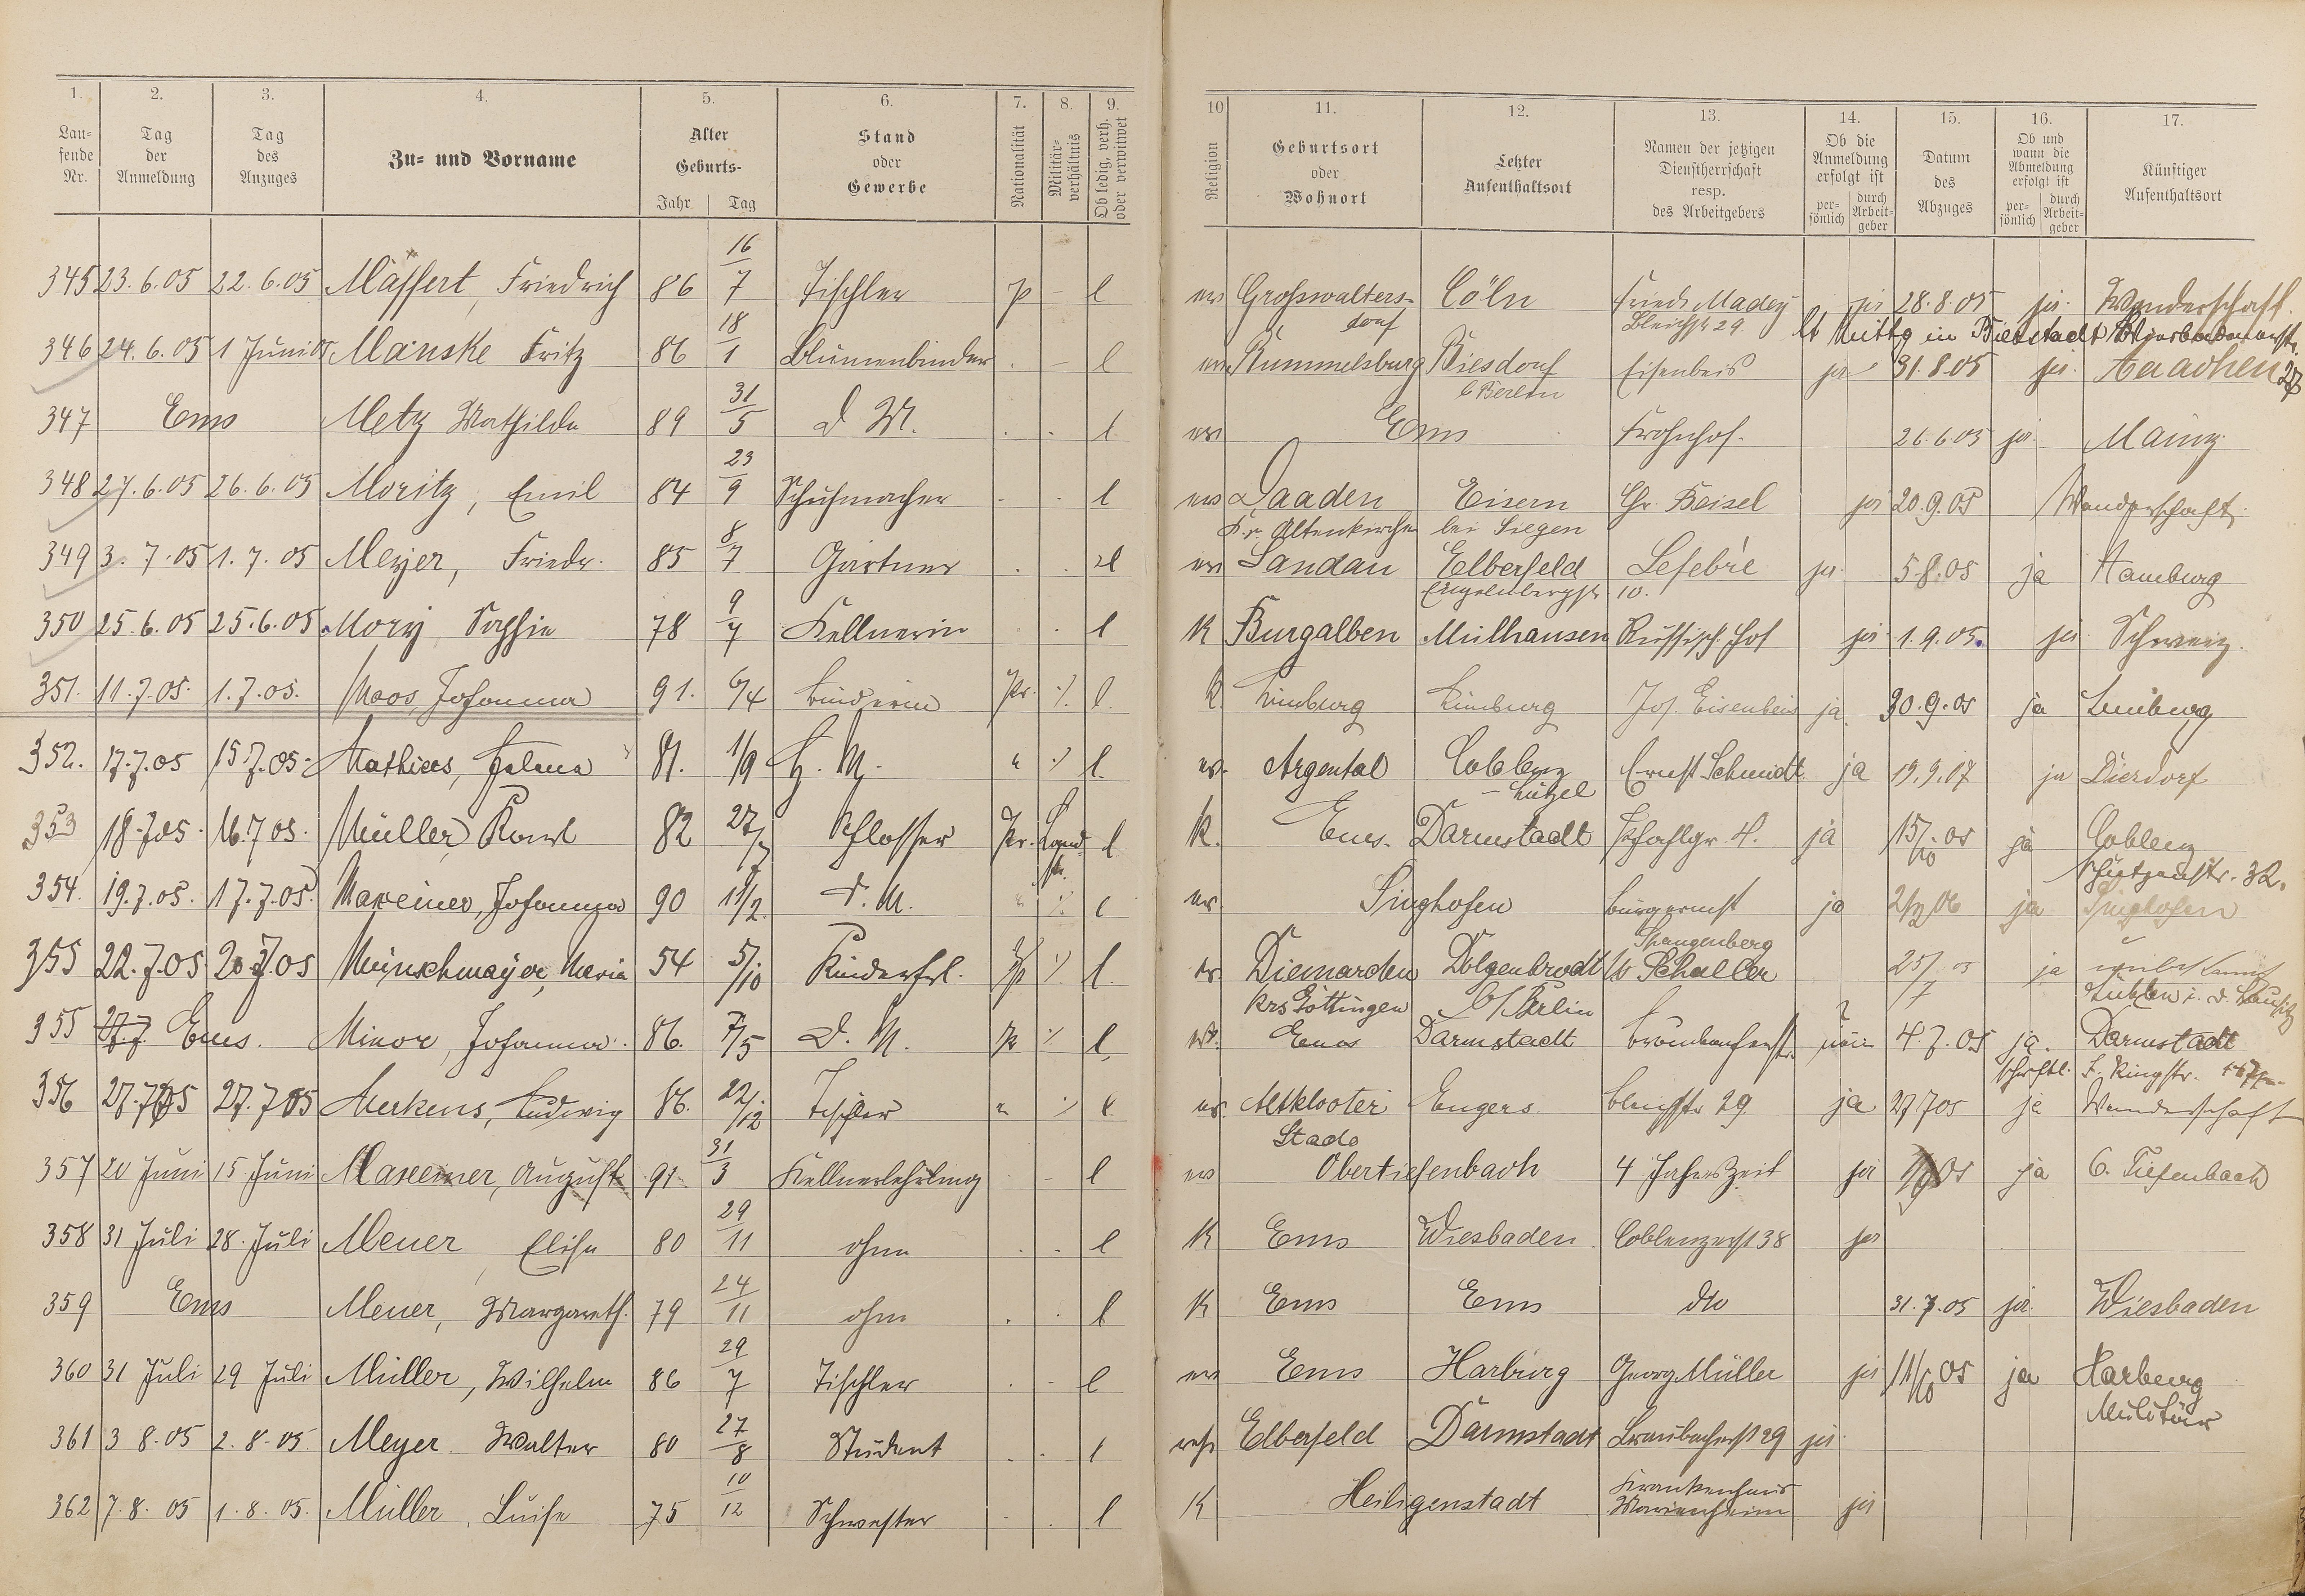 1. 2. 3. 4. 5. 6. 7. 8. 9.
Lau-
fende
Nr.
Tag
der
Anmeldung
Tag
des
Anzuges
Zu- und Vorname
Alter
Geburts-
Jahr Tag
Stand
oder
Gewerbe
Nationalität
Militär-
verhältnis
Ob ledig, verh.
oder verwitwet
10 11. 12. 13. 14. 15. 16. 17.
Religion
Geburtsort
oder
Wohnort
Letzter
Aufenthaltsort
Namen der jetzigen
Dienstherrschaft
resp.
des Arbeitgebers
Ob die
Anmeldung
erfolgt ist
per-
sönlich
durch
Arbeit-
geber
Datum
des
Abzuges
Ob und
wann die
Abmeldung
erfolgt ist
per-
sönlich
durch
Arbeit-
geber
Künftiger
Aufenthaltsort
345 23.6.05 22.6.05 Massert, Friedrich 86 16/7 Tischler p - l ev Grosswalters- Cöln Friedr Madey ja 28.8.05 ja Wanderschaft
dorf Bleichstr 29
346 24.6.05 1 Juni 05 Manske Fritz 86 18/1 Blumenbinder - l ev Rummelsburg Biesdorf Eisenbeis ja 31.8.05 ja Aaachen
b Berlin
347 Ems Metz Mathilde 89 31/5 d M. l ev Ems Frohnhof. 26.6.05 ja Mainz
348 27.6.05 26.6.05 Moritz, Emil 84 23/9 Schuhmacher l ev Daaden Eisern Chr. Beisel ja 20.9.05 Wanderschaft
Kr. Altenkirchen bei Siegen
349 3.7.05 1.7.05 Meyer, Friedr. 85 8/7 Gärtner l ev Landau Elberfeld Lefebre ja 5.8.05 ja Hamburg
Engelnbergstr 10.
350 25.6.05 25.6.05 Mory Sophie 78 9/7 Kellnerin l K Burgalben Mülhausen Russisch. Hof ja 1.9.05. ja Schweiz.
351. 11.7.05. 1.7.05. Moos, Johanna 91. 6/4 Binderin Pr. ·/. l. K. Limburg Limburg Jos. Eisenbeis ja 30.9.05 ja Limburg
352. 17.7.05 15.7.05. Mathies, Helena 81. 1/9 H. M. " ·/. l. ev. Argental Coblenz Ernst Schmidt ja 19.9.07 ja Dierdorf
- Lützel
353 18.7.05. 16.7.05. Müller, Karl 82 27/7 Schlosser Pr. Land- l K. Ems. Darmstadt ja 15/10 05 ja Coblenz
str. Schützenstr. 32.
354. 19.7.05. 17.7.05. Maxeiner, Johanna 90 11/2. d. M. l ev Singhofen ja ja Singhofen
355 22.7.05 20.7.05 Münschmayer, Maria 54 5/10 Kinderfrl. ·/. l. ev. Diemarden Dolgenbrodt Spangenberg
Schaller 25/7 05 ja unbekannt
Krs Göttingen b/Berlin Lübben i. d. Lausitz
355 27.7 Ems. Minor, Johanna. 86. 7/5 D. M. ·/. l. ev. Ems Darmstadt nein 4.7.05 ja. Darmstadt
schriftl.
356 27.7.05 27.7.05 Merkens, Ludwig 86. 22/12 Tischler " ·/. l ev. Altklooter Engers. Bleichstr 29 ja 27.7.05 ja Wanderschaft
Stade
357 20 Juni 15 Juni Maxeiner, August 91 31/3 Kellnerlehrling - l ev Obertiefenbach 4 Jahreszeit ja ja O. Tiefenbach
358 31 Juli 28. Juli Meuer, Elise 80 29/11 ohne l K Ems Wiesbaden Coblenzerstr 38 ja
359 Ems Meuer, Margareth. 79 24/11 ohne l K Ems Ems dto 31.7.05 ja. Wiesbaden
360 31 Juli 29 Juli Müller, Wilhelm 86 29/7 Tischler - l ev Ems Harburg Georg Müller ja 11/10 05 ja Harburg
Militär
361 3 8.05 2.8.05. Meyer. Walter 80 27/8 Student l ref Elberfeld Darmstadt Braubacherstr 29 ja
362 7.8.05 1.8.05. Müller, Luise 75 10/12 Schwester l K Heiligenstadt Krankenhaus
Marienheim ja